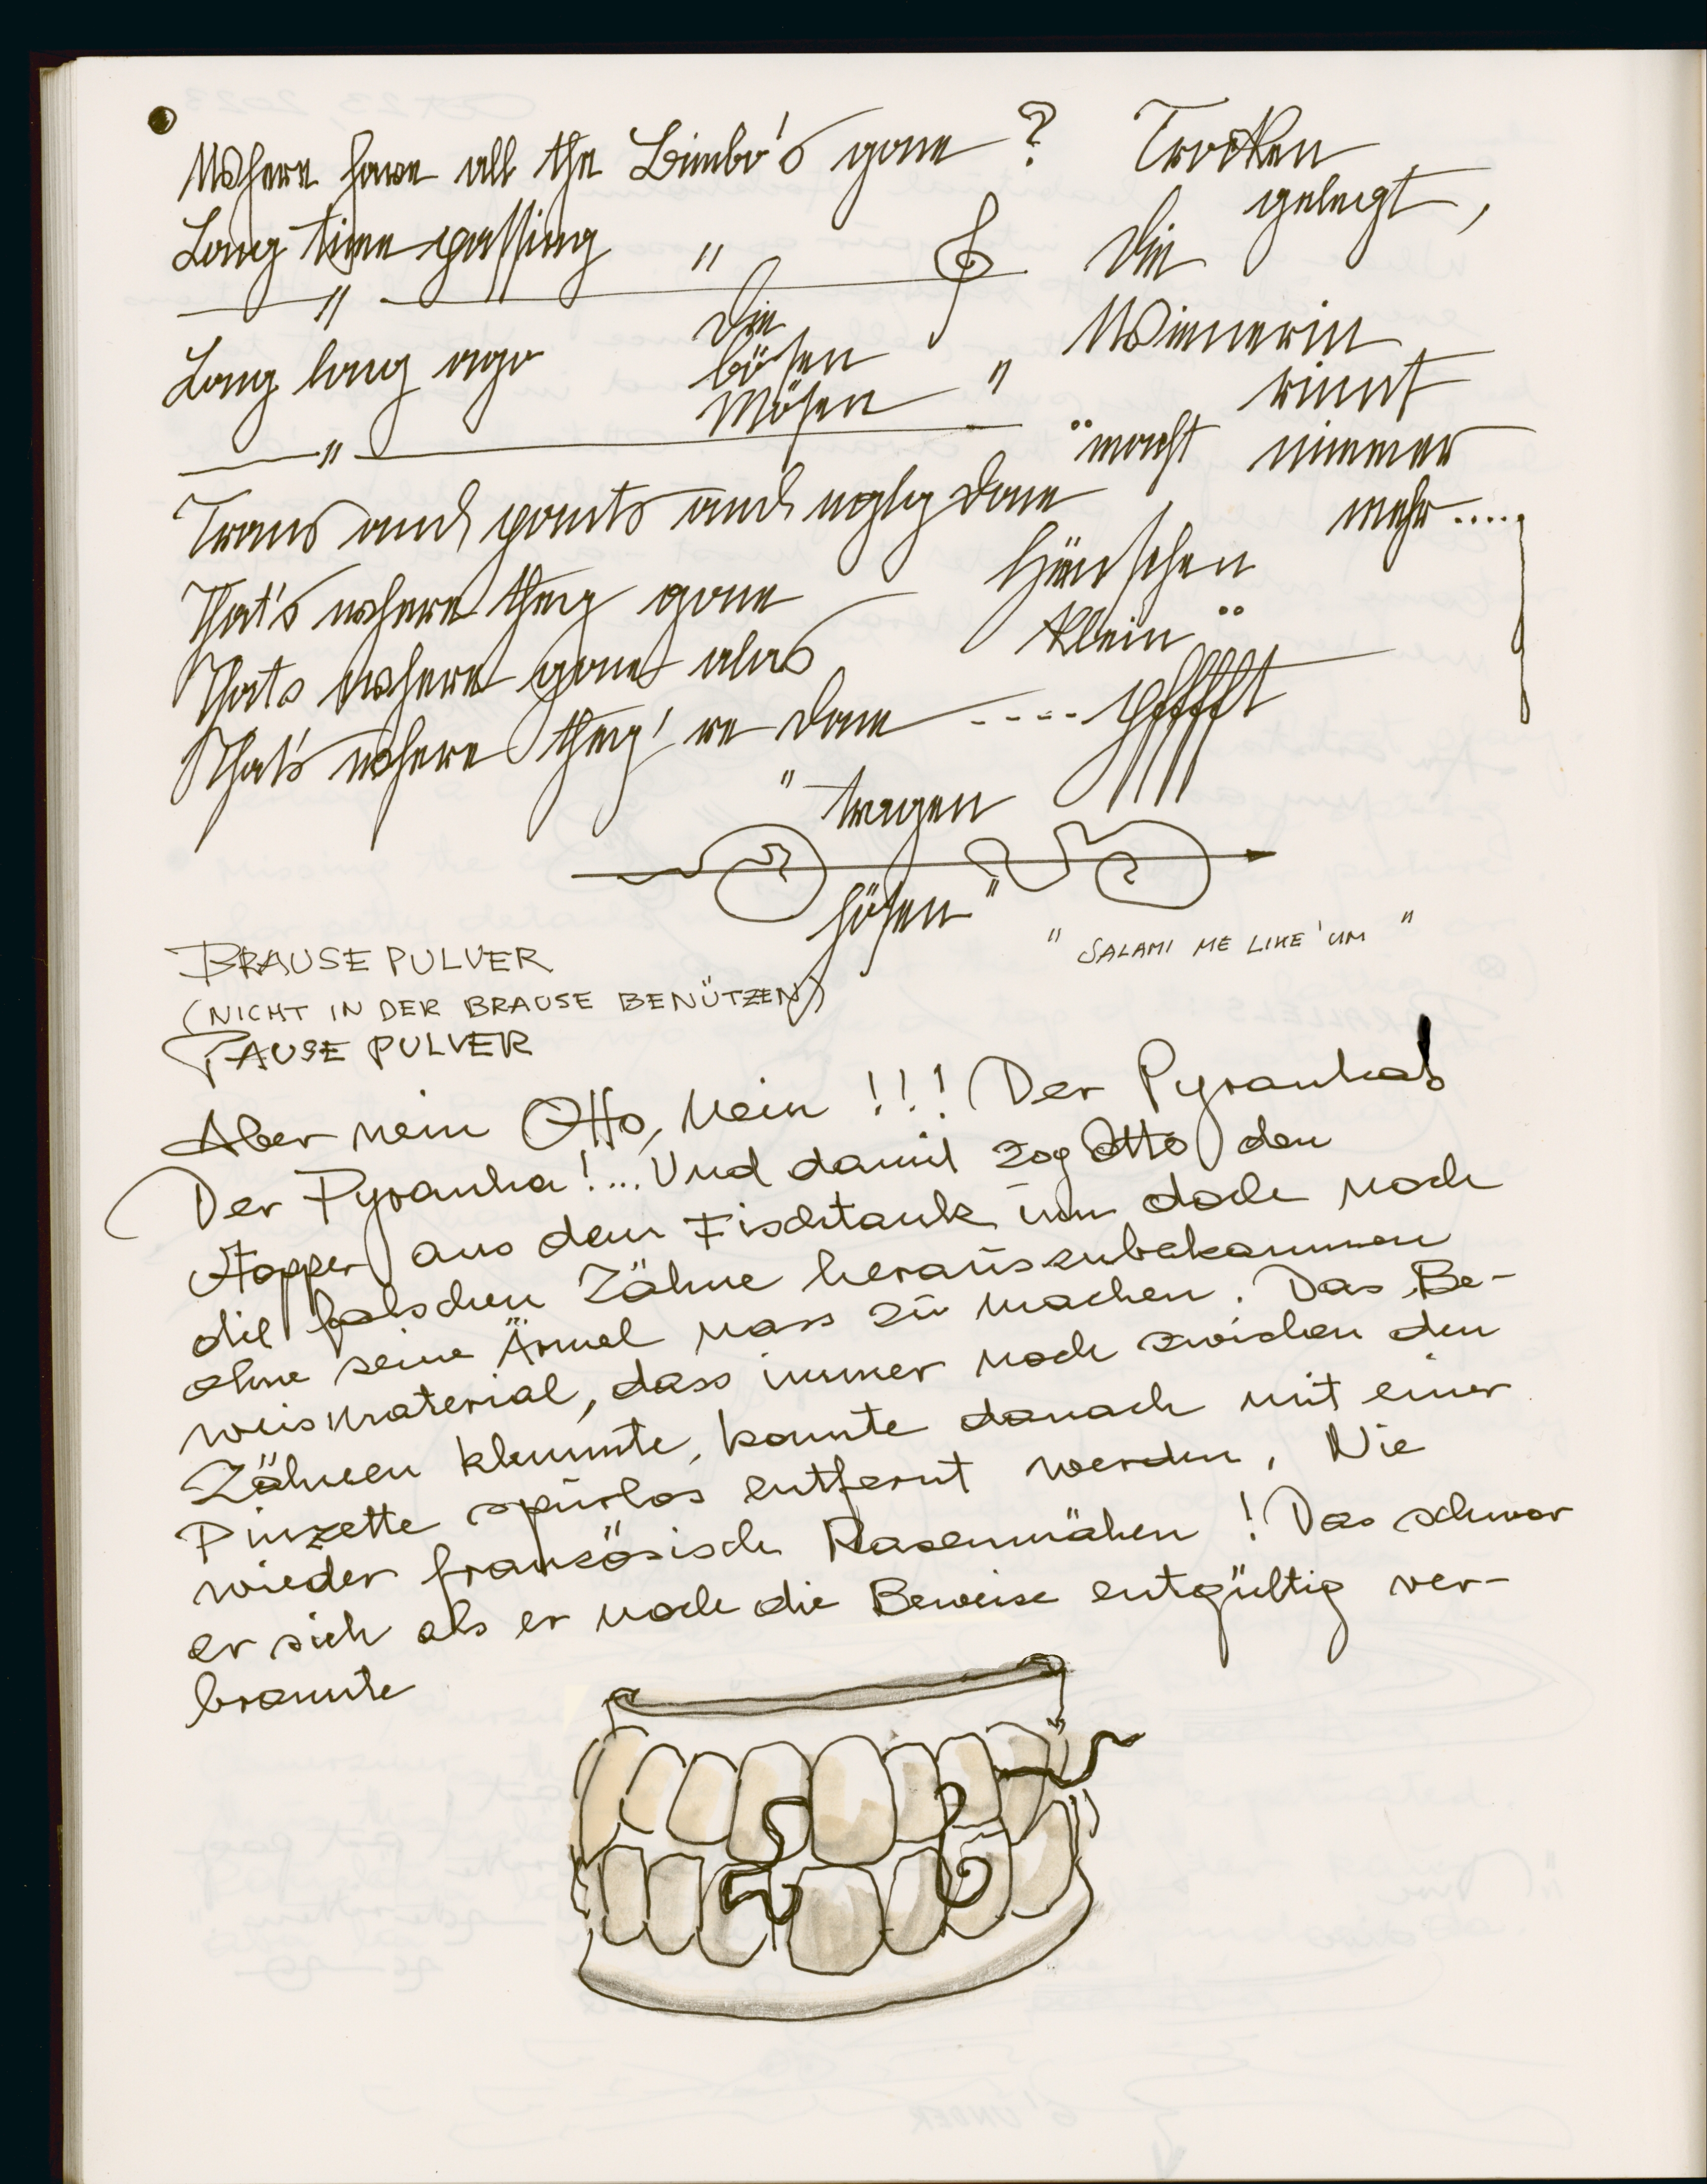 Where have all the Bimbo's gone ? Trocken
gelegt,
Long time passing " Die
"
Die
Wienerin
Long long ago bösen
rinnt
Mösen "
" macht nimmer
"
Trans and pants and ugly done mehr.....
Hänschen
That's where they gone
klein "
Thats where gone alas
That's where they're done ---- pffffft
" tragen
hösen "
" SALAMI ME LIKE 'UM "
BRAUSE PULVER
(NICHT IN DER BRAUSE BENÜTZEN)
PAUSE PULVER
Aber nein Otto, Nein !!! Der Pyranha!
Der Pyranha!... Und damit zog Otto den
Stopper aus dem Fischtank um doch noch
die falschen Zähne herauszubekommen
ohne seine Ärmel nass zu machen. Das Be-
weismaterial, dass immer noch zwischen den
Zähnen klemmte, konnte danach mit einer
Pinzette spurlos entfernt werden. Nie
wieder französisch Rasenmähen ! Das schwor
er sich als er noch die Beweise entgültig ver-
brannte